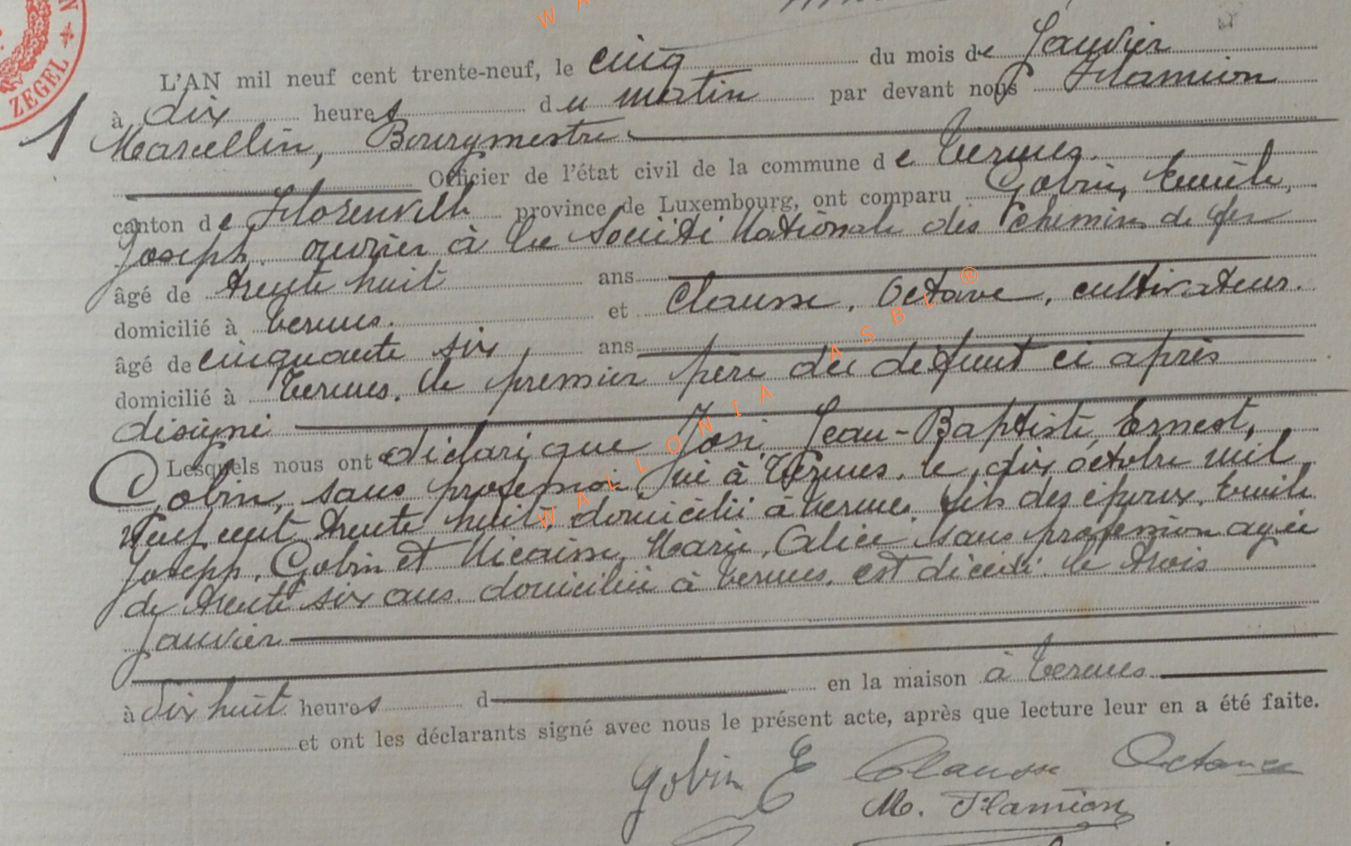 ZEGEL
WALLONIA ASBL ®
L'AN mil neuf cent trente-neuf, le cinq du mois de Janvier
à dix heures du matin par devant nous Flamion
1 Marcellin, Bourgmestre
Officier de l'état civil de la commune de Termes.
canton de Florenville province de Luxembourg, ont comparu Gobin, Emile,
Joseph, ouvrier à la Société Nationale des Chemins de fer
âgé de trente huit ans
domicilié à Termes. et Clausse, Octave, cultivateur.
âgé de cinquante six ans
domicilié à Termes. le premier père du défunt ci après
désigné
Lesquels nous ont déclaré que José, Jean-Baptiste, Ernest,
Gobin, sans profession, né à Termes, le dix octobre mil
neuf cent trente huit, domicilié à Termes, fils des époux, Emile
Joseph, Gobin et Nicaisse, Marie, Alice, sans profession agée
de trente six ans domiciliée à Termes, est décédé le trois
Janvier
à dix huit heures d en la maison à Termes
et ont les déclarants signé avec nous le présent acte, après que lecture leur en a été faite.
Gobin E Clausse Octave
M. Flamion